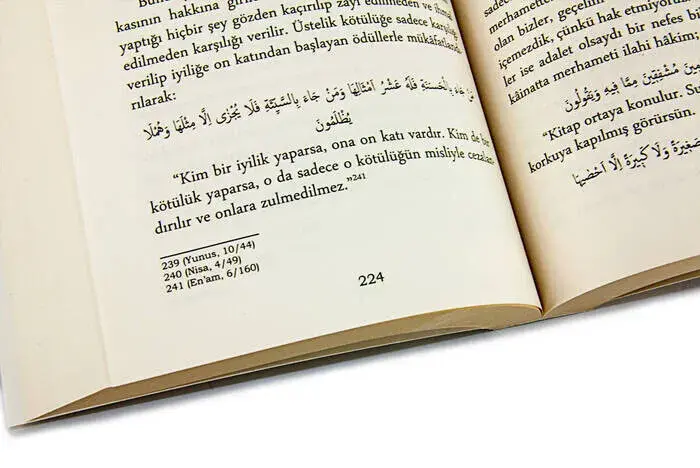 kasının hakkına
yaptığı hiçbir şey gözden kaçırılıp zayi edilmeden ve
edilmeden karşılığı verilir. Üstelik kötülüğe sadece karşılığı
verilip iyiliğe on katından başlayan ödüllerle mükâfatlandı
rılarak:
مَنْ جَاءَ بِالْحَسَنَةِ فَلَهُ عَشْرُ اَمْثَالِهَا وَمَنْ جَاءَ بِالسَّيِّئَةِ فَلَا يُجْزٰى اِلَّا مِثْلَهَا وَهُمْ لَا
يُظْلَمُونَ
“Kim bir iyilik yaparsa, ona on katı vardır. Kim de bir
kötülük yaparsa, o da sadece o kötülüğün misliyle cezalan
dırılır ve onlara zulmedilmez.”241
239 (Yunus, 10/44)
240 (Nisa, 4/49)
241 (En’am, 6/160)
224
merhametti
olan bizler, geçelim
içemezdik, çünkü hak etmiyor
ler ise adalet olsaydı bir nefes
kâinatta merhameti ilahi hâkim;
مُشْفِقِينَ مِمَّا فِيهِ وَيَقُولُونَ
“Kitap ortaya konulur. Su
korkuya kapılmış görürsün.
صَغِيرَةً وَلَا كَبِيرَةً اِلَّا اَحْصٰيهَا